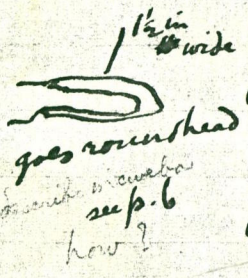 1½ in
wide
goes round head
see p. 6
how?